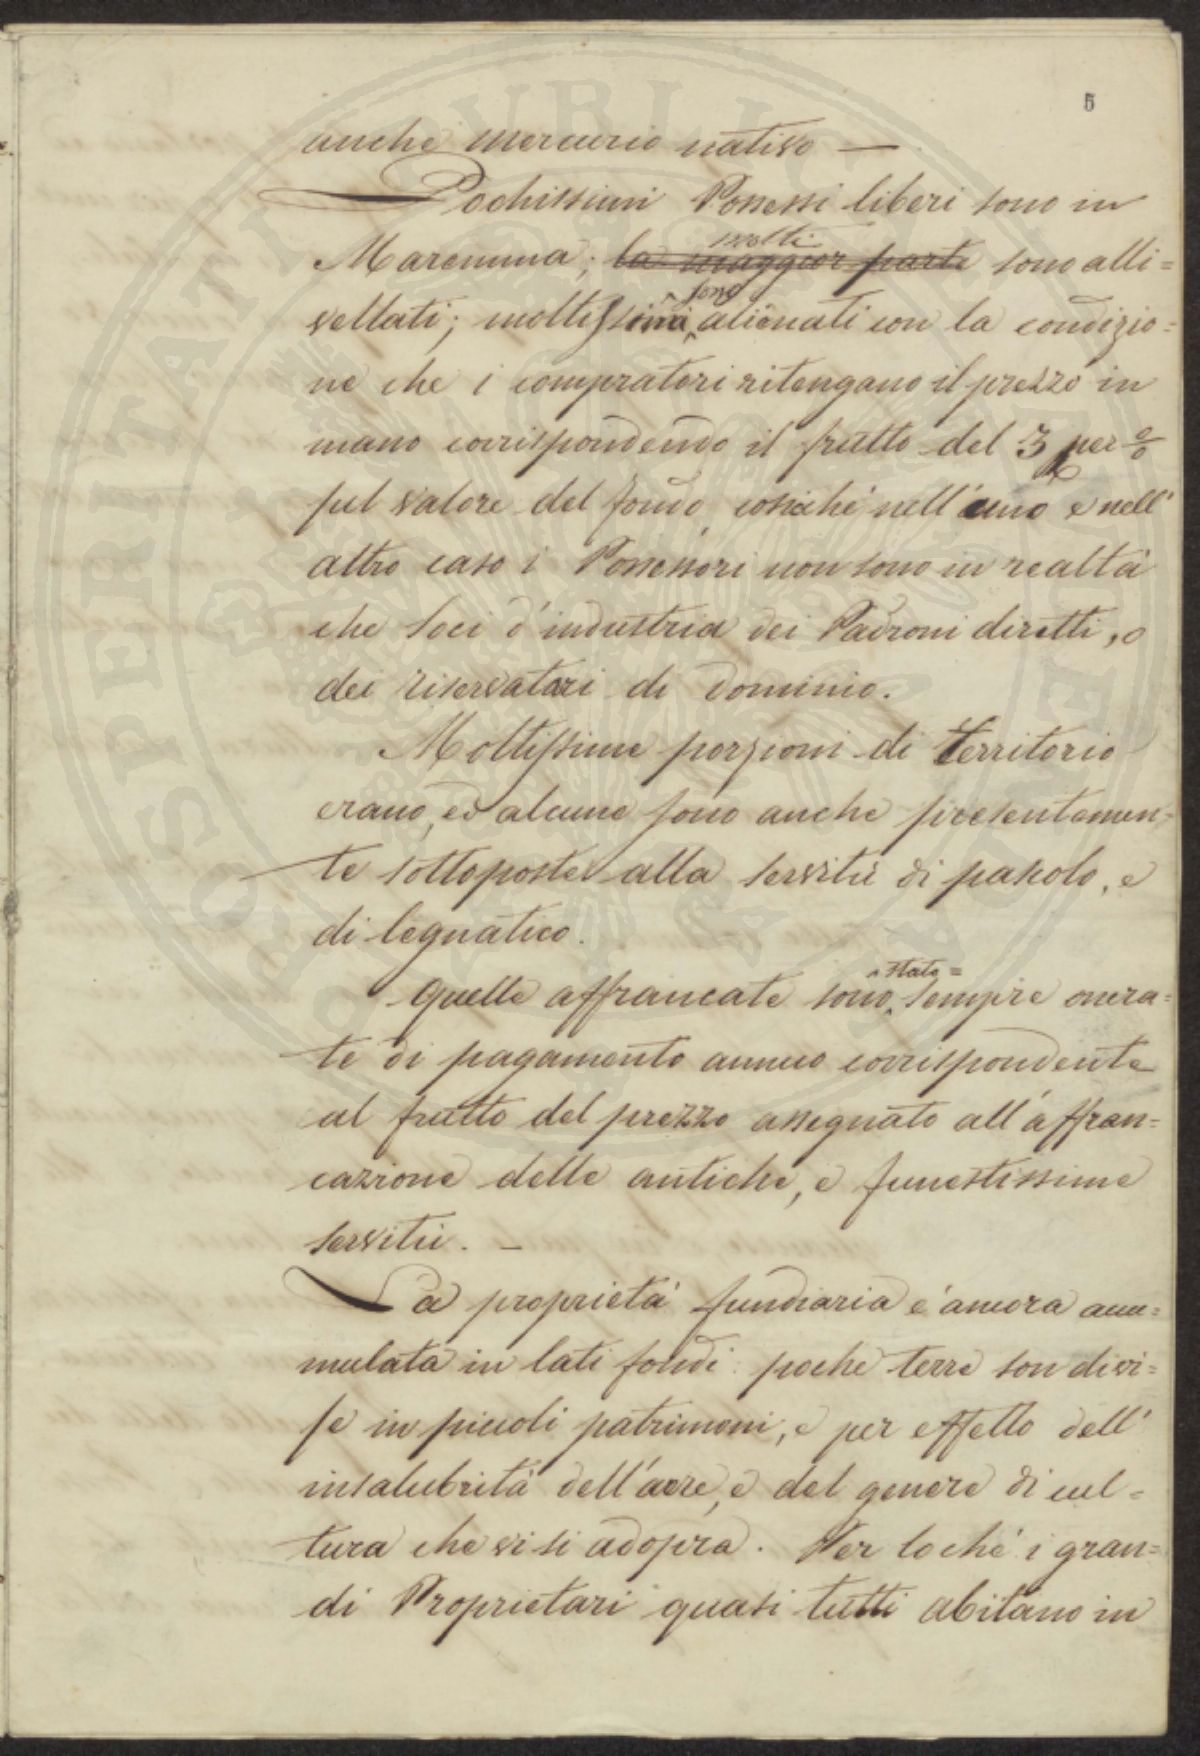 5
anche mercurio nativo —
Pochissimi Possessi liberi sono in
Maremma; ~~la maggior parte~~ molti sono alli=
vellati; moltissimi sono alienati con la condizio=
ne che i compratori ritengano il prezzo in
mano corrispondendo il frutto del 3 per %
sul valore del fondo, cosichè nell'uno e nell'
altro caso i Possessori non sono in realtà
che Soci d'industria dei Padroni diretti, o
dei riservatari di dominio.
Moltissime porzioni di territorio
erano, ed alcune sono anche presentemen=
te sottoposte alla servitù di pascolo, e
di legnatico.
Quelle affrancate sono state sempre onera=
te di pagamento annuo corrispondente
al frutto del prezzo assegnato all'affran=
cazione delle antiche, e funestissime
servitù. —
La proprietà fundiaria è ancora accu=
mulata in lati fondi: poche terre son divi=
se in piccoli patrimoni, e per effetto dell'
insalubrità dell'aere, e del genere di cul=
tura che vi si adopra. Per lo chè i gran=
di Proprietari quasi tutti abitano in
PROSPERITATI PUBLICAE AUGENDAE